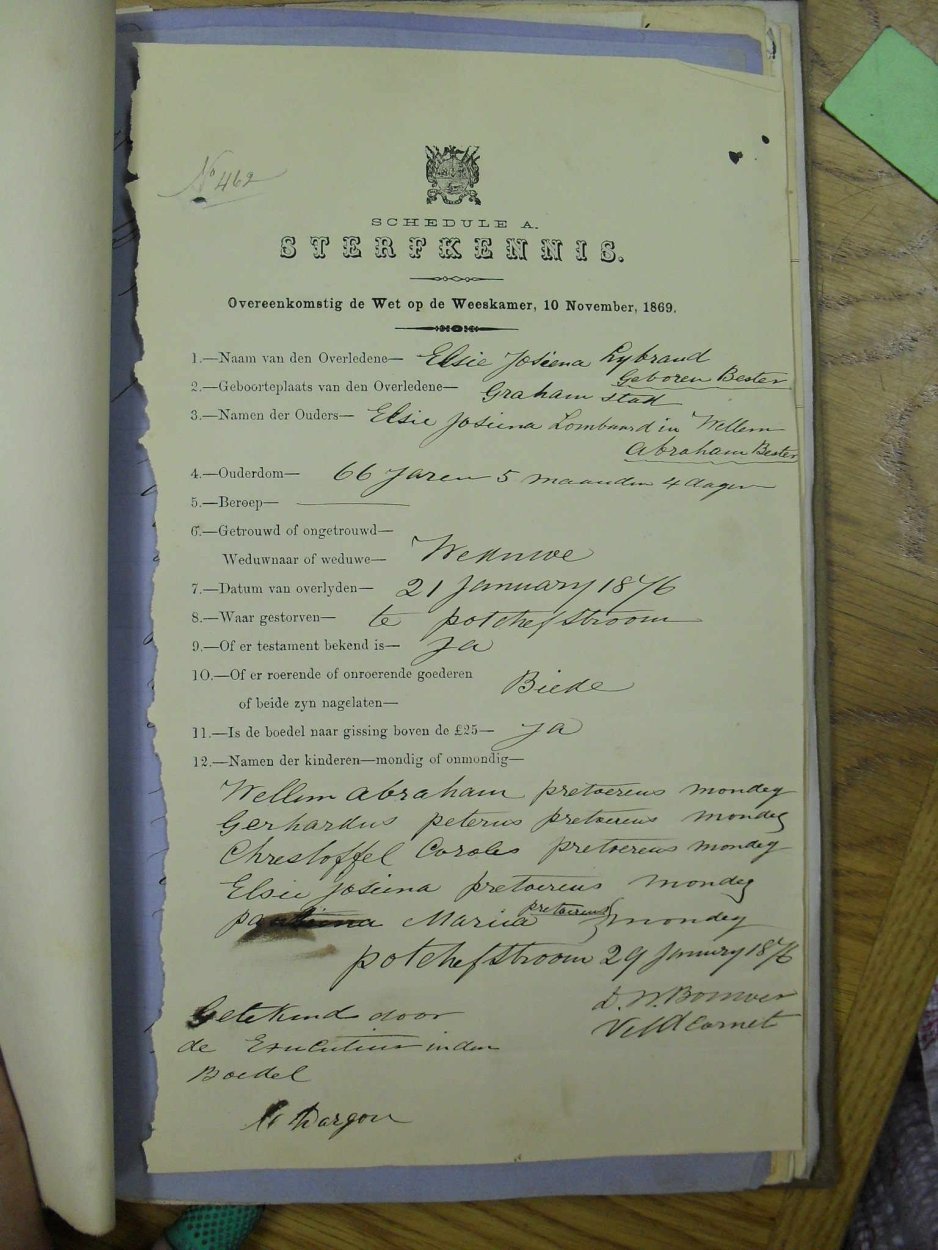 No 462
SCHEDULE A.
STERFKENNIS.
Overeenkomstig de Wet op de Weeskamer, 10 November, 1869.
1.—Naam van den Overledene— Elsie Josiena Lybrand
Geboren Bester
2.—Geboorteplaats van den Overledene— Graham stad
3.—Namen der Ouders— Elsie Josiena Lombaard in Wellem
Abraham Bester
4.—Ouderdom— 66 Jaren 5 maanden 4 dagen
5.—Beroep—
6.—Getrouwd of ongetrouwd—
Weduwnaar of weduwe— Weduwe
7.—Datum van overlyden— 21 January 1876
8.—Waar gestorven— te potchefstroom
9.—Of er testament bekend is— Ja
10.—Of er roerende of onroerende goederen
of beide zyn nagelaten— Biede
11.—Is de boedel naar gissing boven de £25— Ja
12.—Namen der kinderen—mondig of onmondig—
Wellem abraham pretoreus mondeg
Gerhardus peterus pretoreus mondeg
Chrestoffel Caroles pretoreus mondeg
Elsie Josiena pretoreus mondeg
Maria pretoreus mondeg
potchefstroom 29 January 1876
D. W. Bouwer
Veld Cornet
Getekend door
de in den
Boedel